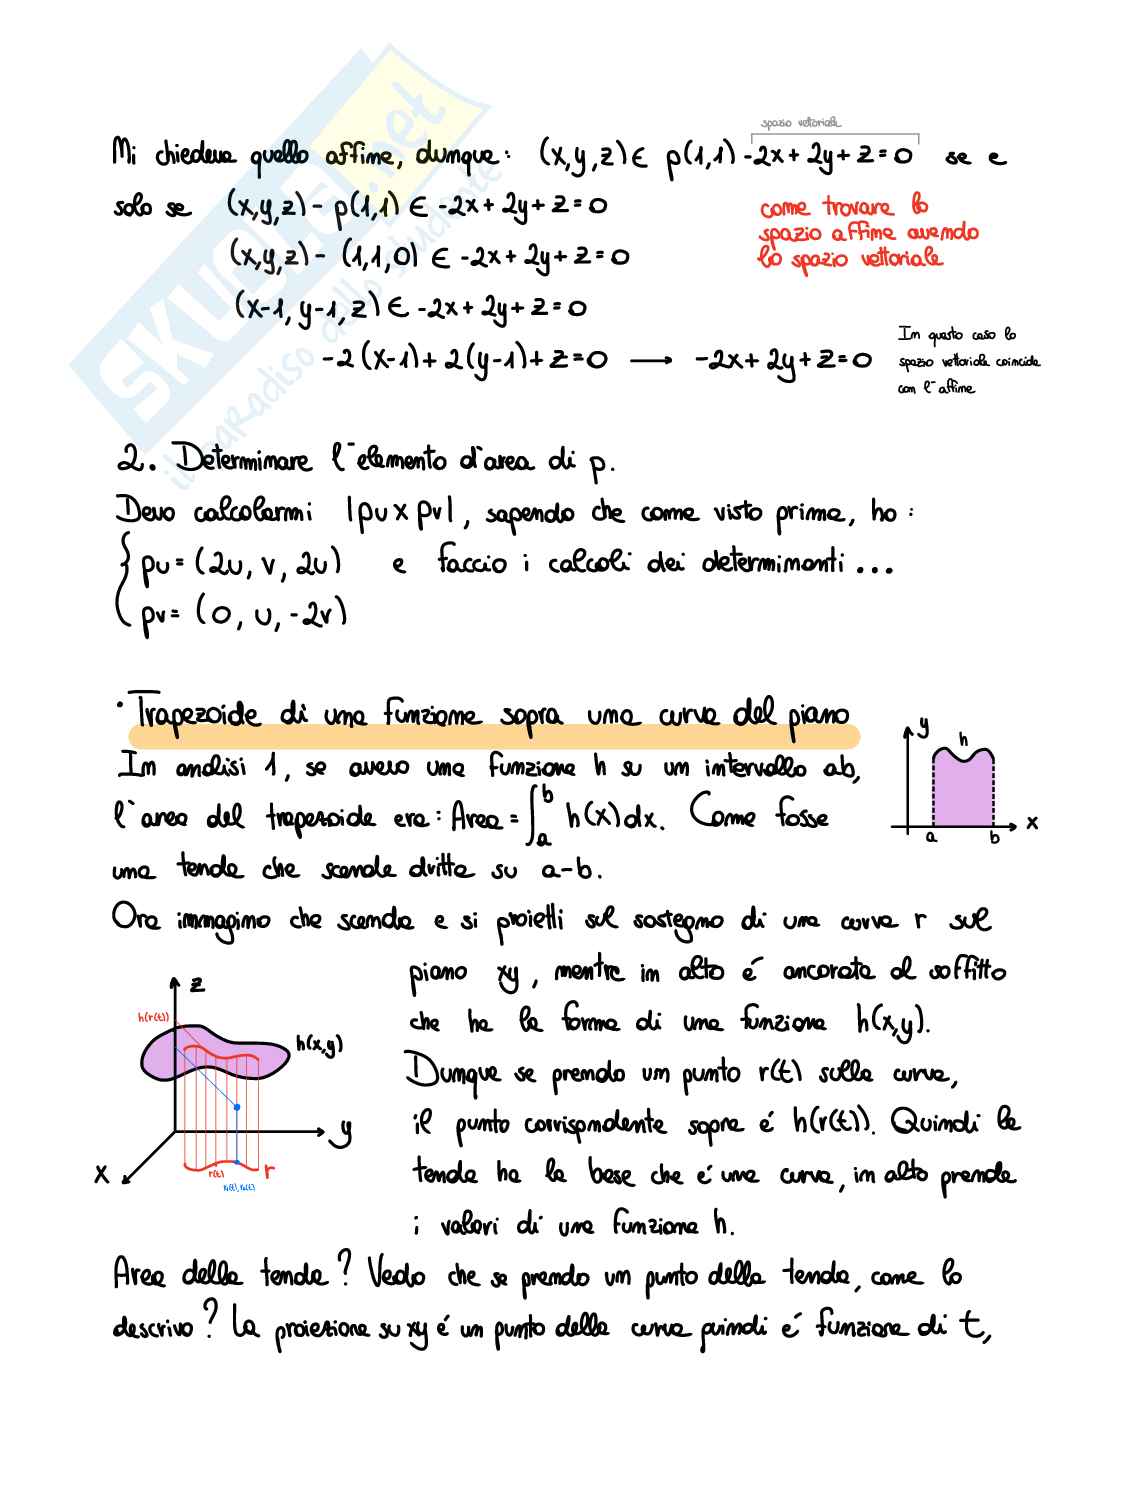 spazio vettoriale
Mi chiedeva quello affine, dunque: (x,y,z) ∈ p(1,1) -2x+2y+z=0 se e
solo se (x,y,z) - p(1,1) ∈ -2x+2y+z=0
(x,y,z) - (1,1,0) ∈ -2x+2y+z=0
(x-1, y-1, z) ∈ -2x+2y+z=0
-2(x-1)+2(y-1)+z=0 → -2x+2y+z=0
come trovare lo
spazio affine avendo
lo spazio vettoriale
In questo caso lo
spazio vettoriale coincide
con l'affine
2. Determinare l'elemento d'area di p.
Devo calcolarmi |pu x pv|, sapendo che come visto prima, ho:
{ pu = (2u, v, 2u) e faccio i calcoli dei determinanti...
pv = (0, u, -2v)
• Trapezoide di una funzione sopra una curva del piano
In analisi 1, se avevo una funzione h su un intervallo ab,
l'area del trapezoide era: Area = ∫ₐᵇ h(x)dx. Come fosse
una tenda che scende dritta su a-b.
y
h
a b x
Ora immagino che scenda e si proietti sul sostegno di una curva r sul
piano xy, mentre in alto é ancorata al soffitto
che ha la forma di una funzione h(x,y).
Dunque se prendo un punto r(t) sulla curva,
il punto corrispondente sopra é h(r(t)). Quindi la
tenda ha la base che é una curva, in alto prende
i valori di una funzione h.
z
h(r(t))
h(x,y)
y
x
r(t)
r
r₁(t), r₂(t)
Area della tenda? Vedo che se prendo un punto della tenda, come lo
descrivo? La proiezione su xy é un punto della curva quindi é funzione di t,
SKUOLA.net
il paradiso dello studente